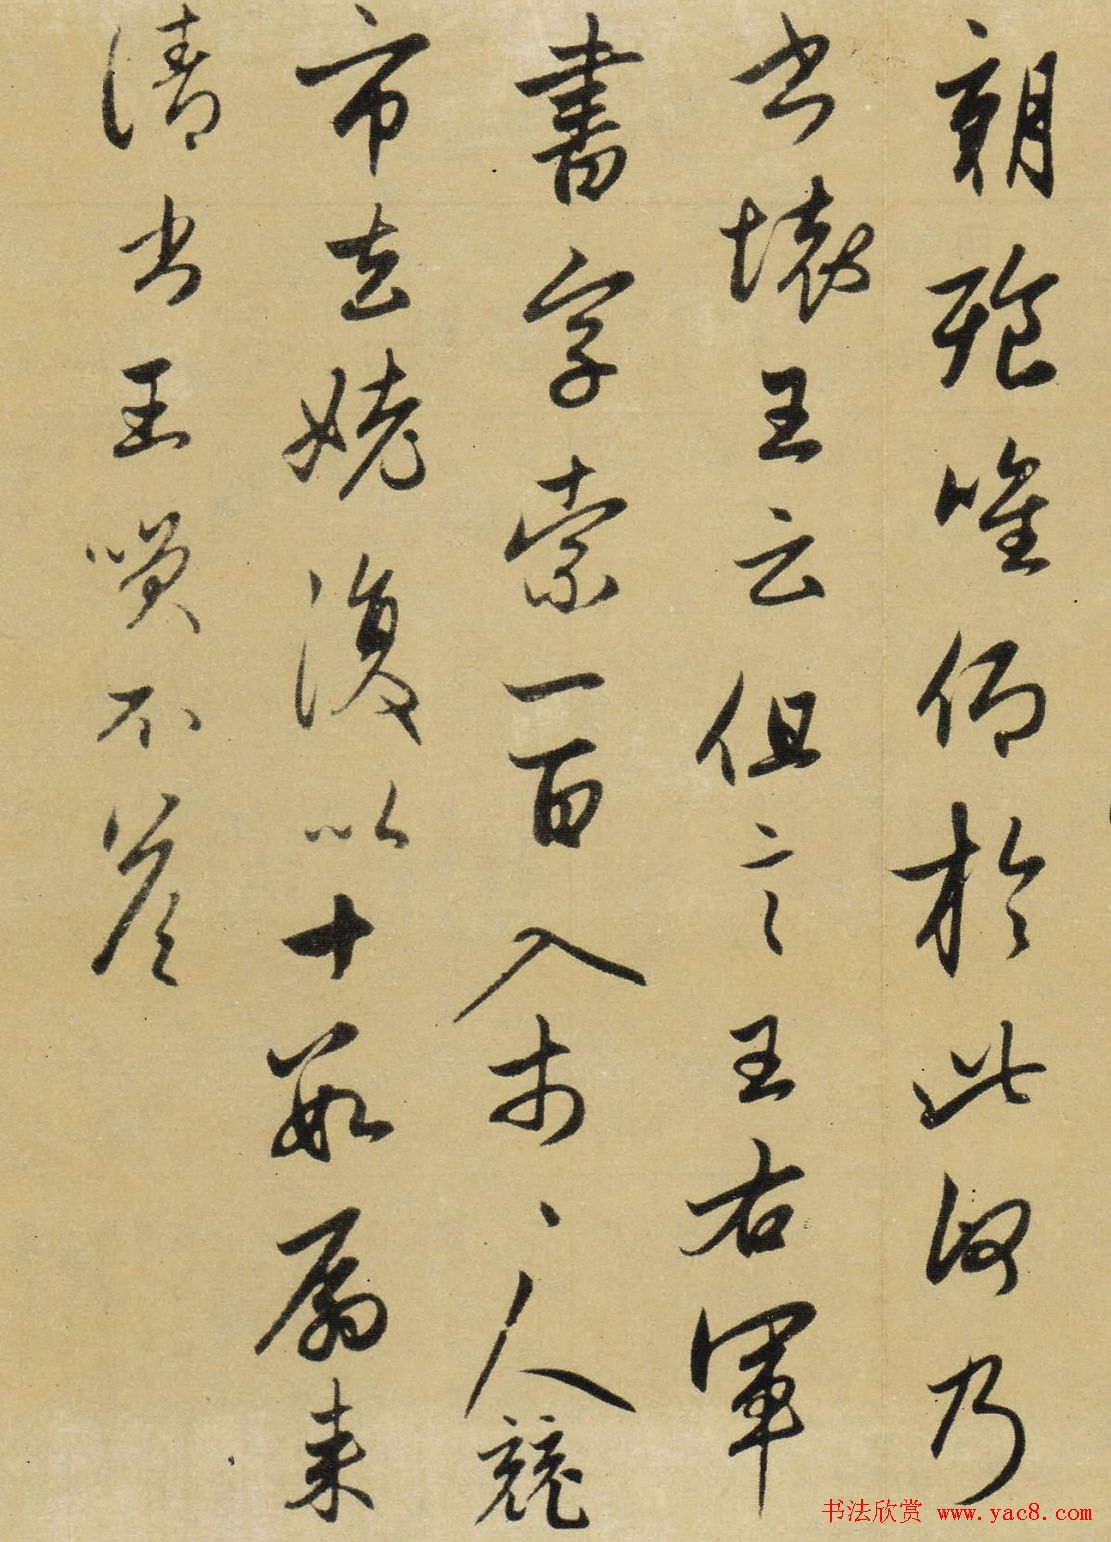 朝飧唯仰於此何乃
書壞王云但言王右軍
書字索一百入市〻人競
市去姥復以十數扇来
請書王笑不答
书法欣赏 www.yac8.com